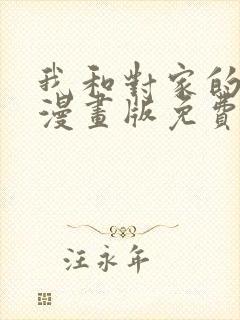 我和對家的
漫畫版免費
汪永年